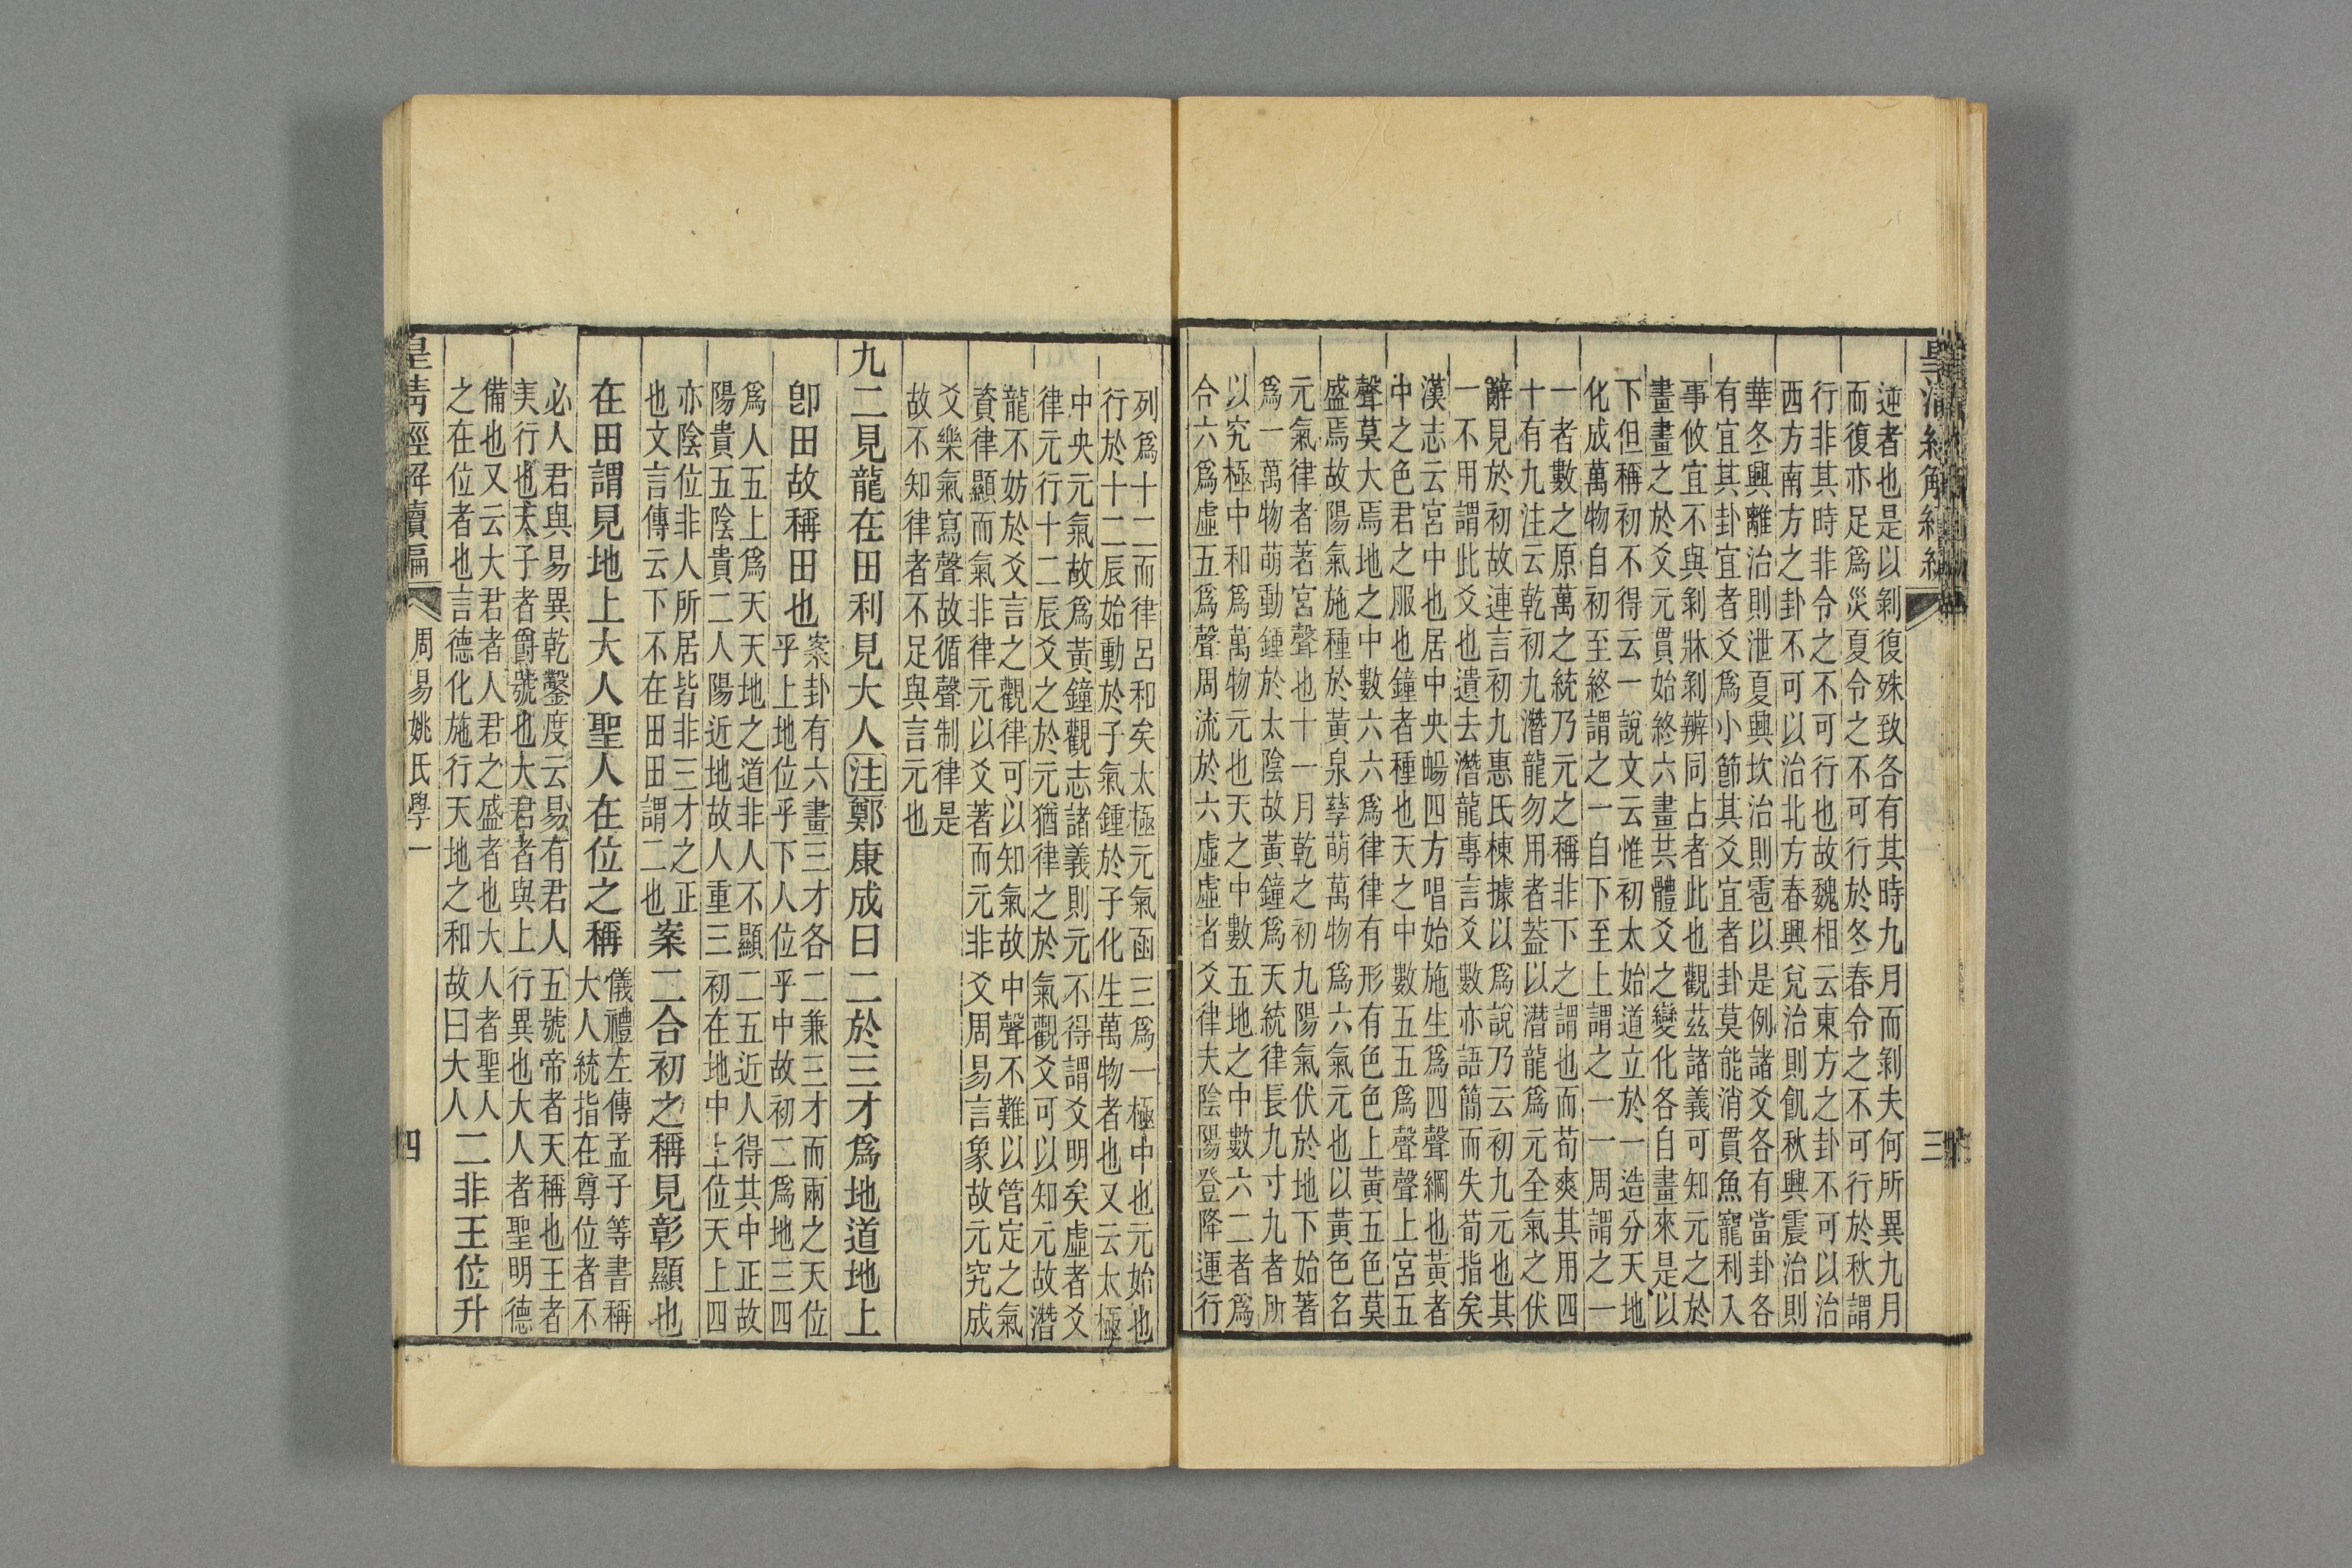 皇清經解續編 三
逆者也是以剝復殊致各有其時九月而剝夫何所異九月
而復亦足爲災夏令之不可行於冬春令之不可行於秋謂
行非其時非令之不可行也故魏相云東方之卦不可以治
西方南方之卦不可以治北方春興兌治則飢秋興震治則
華冬興離治則泄夏興坎治則雹以是例諸爻各有當卦各
有宜其卦宜者爻爲小節其爻宜者卦莫能消貫魚寵利入
事攸宜不與剝牀剝辨同占者此也觀茲諸義可知元之於
畫畫之於爻元貫始終六畫共體爻之變化各自畫來是以
下但稱初不得云一說文云惟初太始道立於一造分天地
化成萬物自初至終謂之一自下至上謂之一一周謂之一
一者數之原萬之統乃元之稱非下之謂也而荀爽其用四
十有九注云乾初九潛龍勿用者葢以潛龍爲元全氣之伏
辭見於初故連言初九惠氏棟據以爲說乃云初九元也其
一不用謂此爻也遺去潛龍專言爻數亦語簡而失荀指矣
漢志云宮中也居中央暢四方唱始施生爲四聲綱也黃者
中之色君之服也鐘者種也天之中數五五爲聲聲上宮五
聲莫大焉地之中數六六爲律律有形有色色上黃五色莫
盛焉故陽氣施種於黃泉孳萌萬物爲六氣元也以黃色名
元氣律者著宮聲也十一月乾之初九陽氣伏於地下始著
爲一萬物萌動鍾於太陰故黃鐘爲天統律長九寸九者所
以究極中和爲萬物元也天之中數五地之中數六二者爲
合六爲虛五爲聲周流於六虛虛者爻律夫陰陽登降運行
列爲十二而律呂和矣太極元氣函三爲一極中也元始也
行於十二辰始動於子氣鍾於子化生萬物者也又云太極
中央元氣故爲黃鐘觀志諸義則元不得謂爻明矣虛者爻
律元行十二辰爻之於元猶律之於氣觀爻可以知元故潛
龍不妨於爻言之觀律可以知氣故中聲不難以管定之氣
資律顯而氣非律元以爻著而元非爻周易言象故元究成
爻樂氣寫聲故循聲制律是
故不知律者不足與言元也
九二見龍在田利見大人注鄭康成曰二於三才爲地道地上
卽田故稱田也
案卦有六畫三才各二兼三才而兩之天位
乎上地位乎下人位乎中故初二爲地三四
爲人五上爲天天地之道非人不顯二五近人得其中正故
陽貴五陰貴二人陽近地故人重三初在地中上位天上四
亦陰位非人所居皆非三才之正
也文言傳云下不在田田謂二也
案二合初之稱見彰顯也
在田謂見地上大人聖人在位之稱
儀禮左傳孟子等書稱
大人統指在尊位者不
必人君與易異乾鑿度云易有君人五號帝者天稱也王者
美行也天子者爵號也大君者與上行異也大人者聖明德
備也又云大君者人君之盛者也大人者聖人
之在位者也言德化施行天地之和故曰大人
二非王位升
皇清經解續編 周易姚氏學一 四